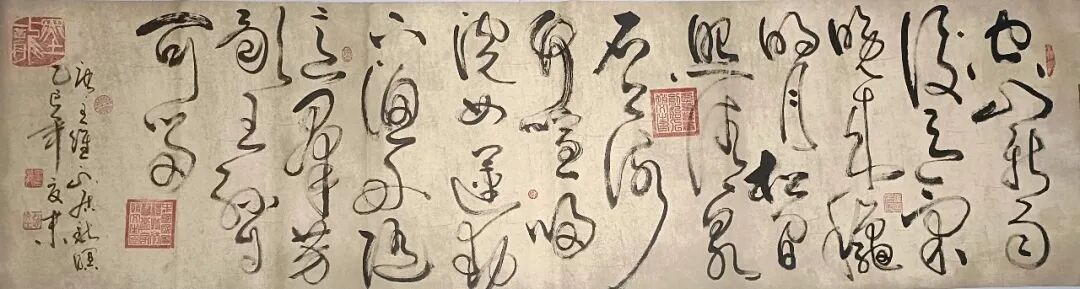 空山新雨
後天氣
晚来龝
明月松間
照清泉
石上流
竹喧歸
浣女蓮動
下漁舟隨
意春芳
歇王孫自
可留
唐王維山居秋暝
乙巳年